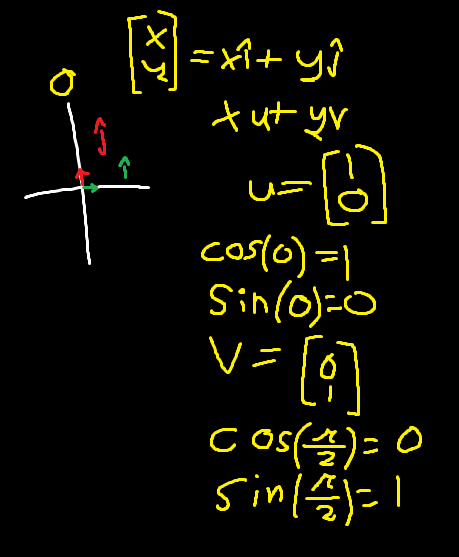 [x y] = xî + yĵ
O
ĵ
î
xu + yv
u = [1 0]
cos(0) = 1
sin(0) = 0
V = [0 1]
cos(π/2) = 0
sin(π/2) = 1